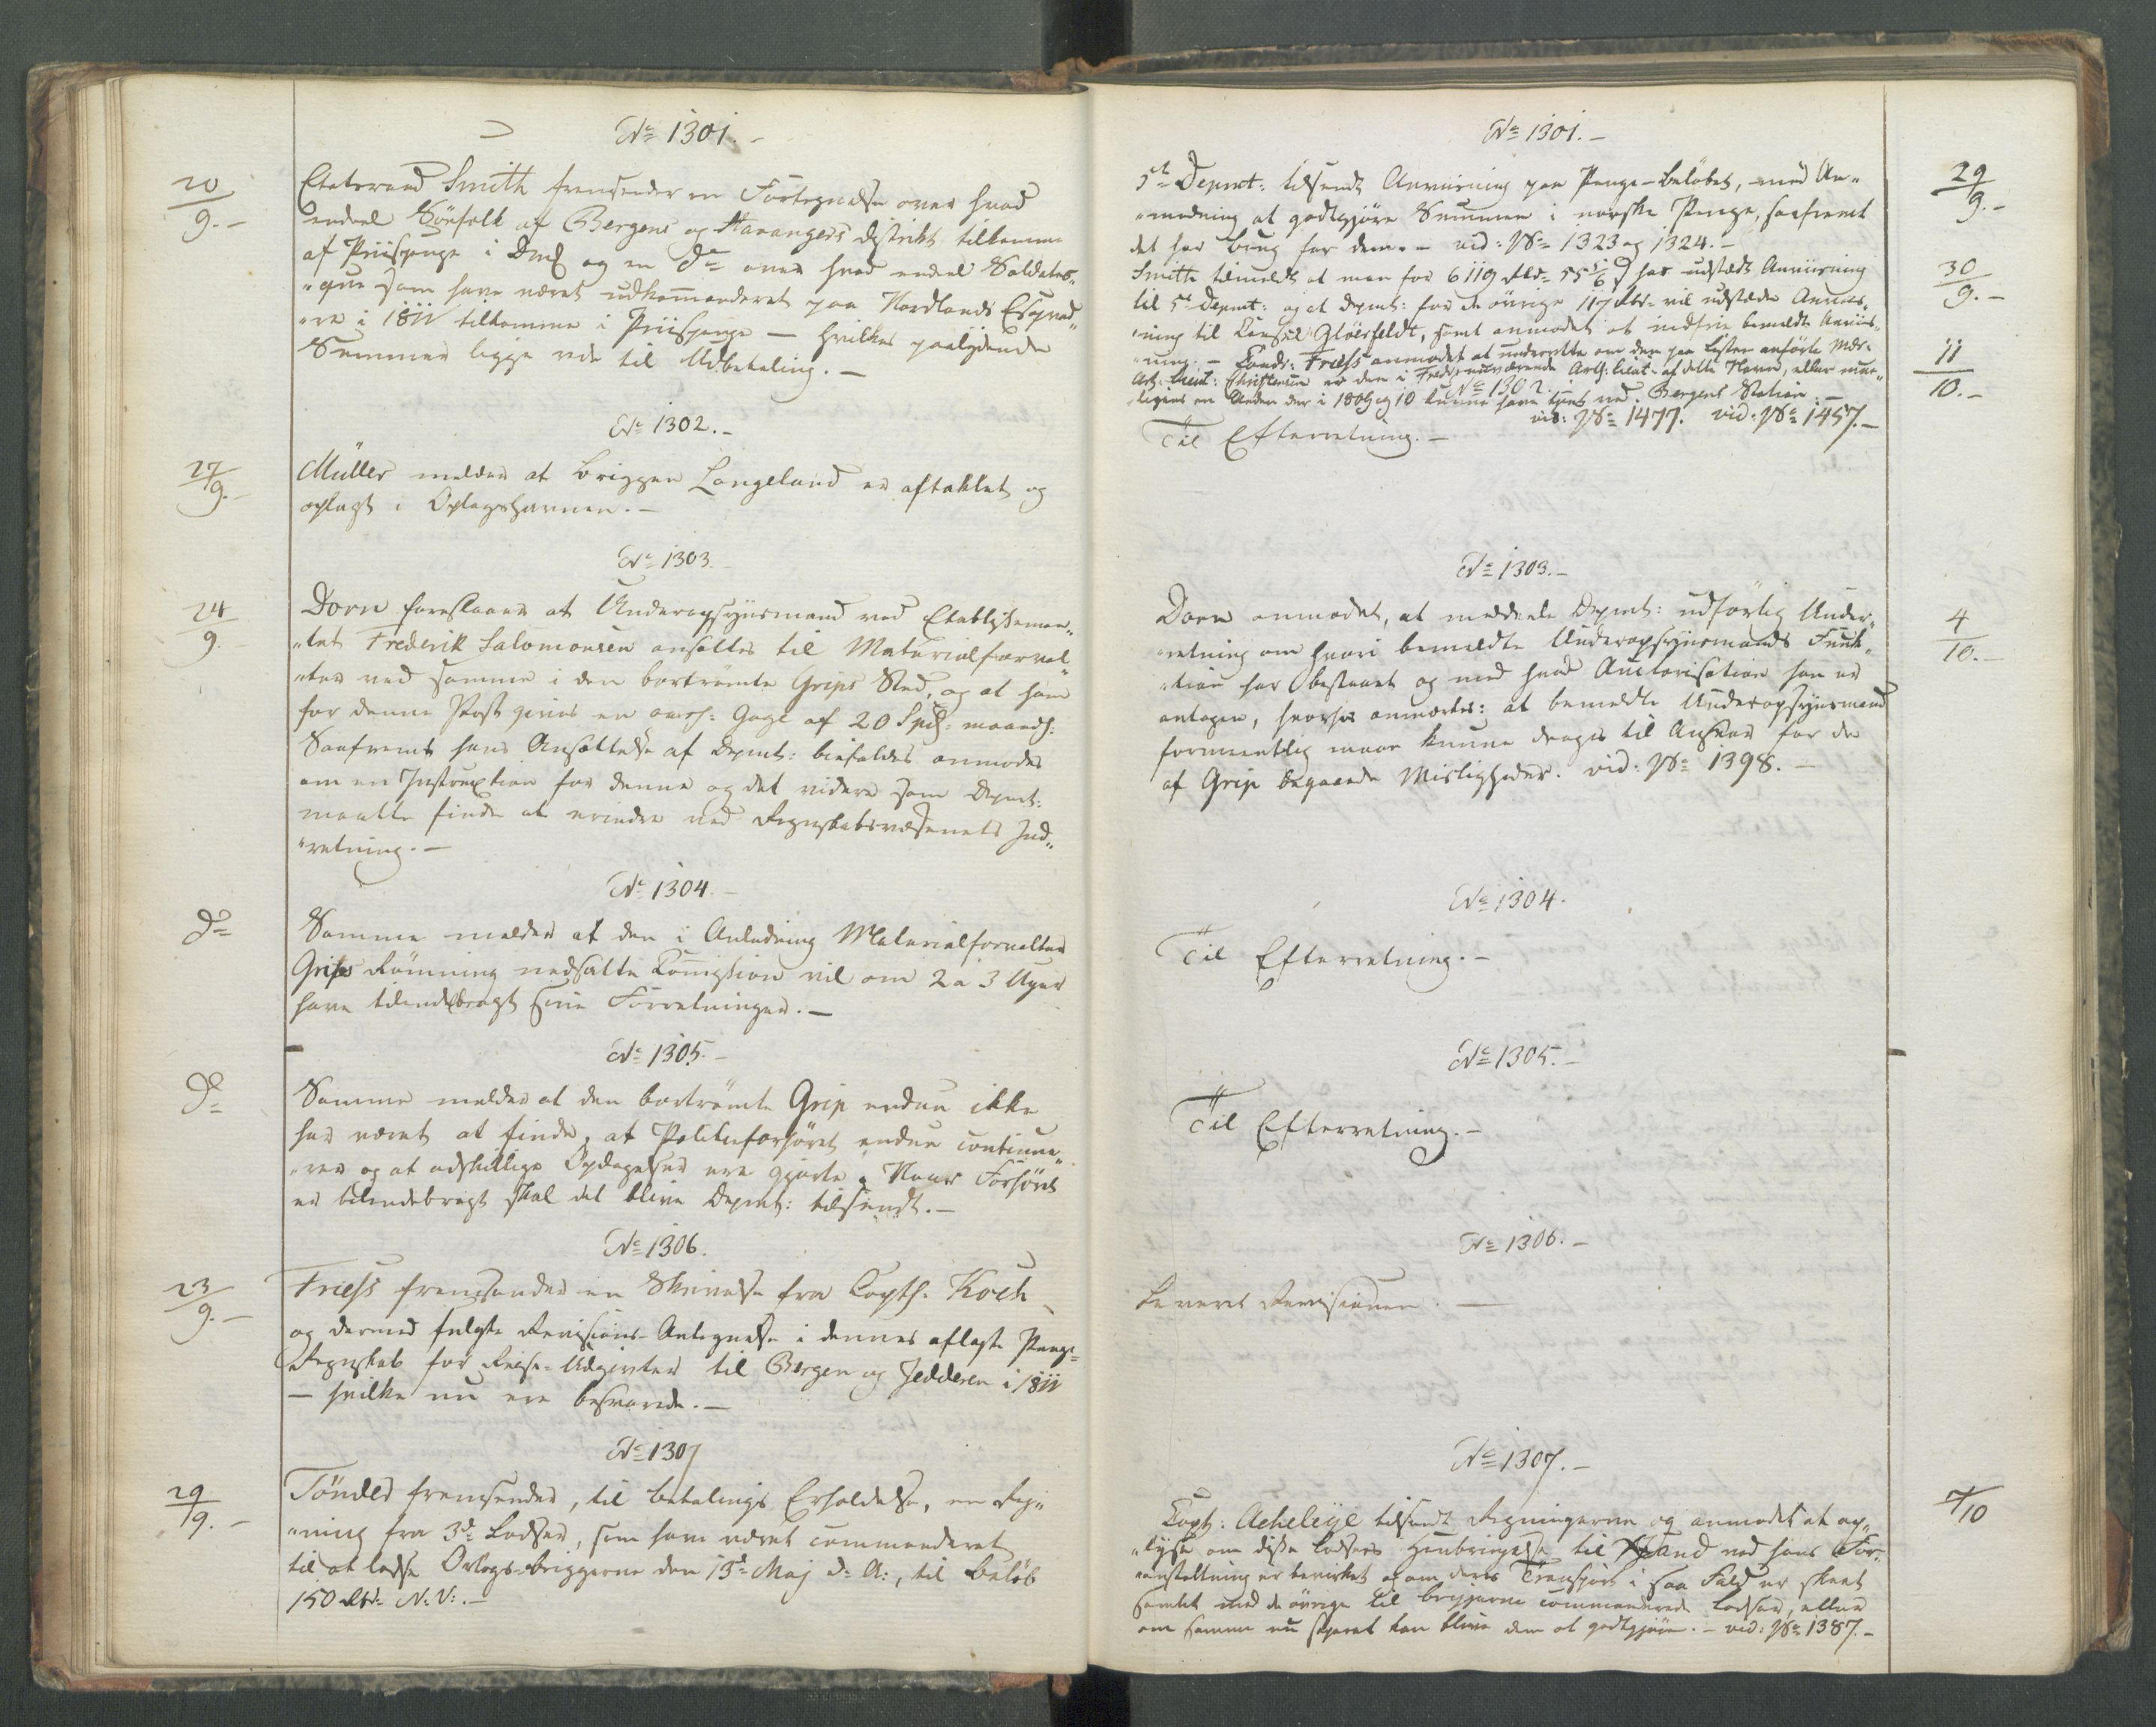 No 1301.-
20/9.-
Etatsraad Smith fremsender en Fortegnelse over hvad
endeel Söefolk af Bergens og Stavangers District tilkomme
af Priispenge i Dmk og en do over hvad endeel Soldater
som have været udkommanderet paa Nordlands Esqvad„
„re i 1811 tilkomme i Priispenge — hvilkes paalydende
Summer ligge rede til Udbetaling.—
No 1302.-
27/9.-
Müller melder at Briggen Langeland er aftaklet og
oplagt i Oplagshavnen.—
No 1303.
24/9.
Dorn foreslaaer at Underopsynsmand ved Etablissemen„
„tet Frederik Salomonsen ansættes til Materialforval„
„ter ved samme i den bortrömte Grips Sted, og at ham
for denne Post gives en Gage af 20 Spd: maanedl:
Saafremt hans Ansættelse af Depmt: bifaldes anmodes
om en Instruction for denne og det videre som Depmt:
maatte finde at erindre ved Regnskabsvæsenets Ind„
„retning.—
No 1304.-
do
Samme melder at den i Anledning Materialforvalter
Grips Römning nedsatte Commission vil om 2 a 3 Uger
have tilendebragt sine Forretninger.—
No 1305.-
do
Samme melder at den bortrömte Grip endnu ikke
har været at finde, at Politieforhöret endnu continue„
„rer og at adskillige Opdagelser ere gjorte. Naar Forhöret
er tilendebragt skal det blive Depmt: tilsendt.—
No 1306.
23/9.-
Friess fremsender en Skrivelse fra Capt. Koch
og dermed fulgte Revisions-Antegnelse i dennes aflagte Penge-
Regnskab for Reise-Udgivter til Bergen og Jedderen i 1811
— hvilke nu ere besvarede.—
No 1307
29/9.-
Tönder fremsender, til Betalings Erholdelse, en Reg„
„ning fra 3de Lodser, som have været commanderet
til at lodse Orlogs-Briggerne den 13de Maj d: A:, til Belöb
150 Rbd. N.V:.—
No 1301.-
5te Depmt: tilsendt Anviisning paa Penge-Belöbet, med An„
„modning at godtgjöre Summen i norske Penge, saafremt
det har Brug for dem. — vid: No 1323 og 1324.—
29/9.-
Smith tilmeldt at man for 6119 Rbd. 55 5/6 s har udstædt Anviisning
til 5te Depmt: og at Depmt: for de övrige 117 Rbd. vil udstæde Anviis„
„ning til Consul Gloersfeldt, samt anmodet at indfrie bemeldte Anviis„
„ning.— Comdr: Friess anmodet at underrette om den paa Listen anförte
30/9.-
Lieut: Christensen er den i nærværende Lieut: af dette Navn, eller mue„
„ligens en Anden der i 1809 og 10 kunne have tjent ved Bergens Station.—
11/10.-
vid: No 1477. vid: No 1457.—
No 1302.
Til Efterretning.—
No 1303.-
4/10.-
Dorn anmodet, at meddeele Depmt: udförlig Under„
„retning om hvori bemeldte Underopsynsmands Func„
„tion har bestaaet og med hvad Auctorisation han er
antagen, hvorhos anmærkes: at bemeldte Underopsynsmand
formeentlig maae kunne drages til Ansvar for de
af Grip begaaede Misligheder. vid: No 1398.—
No 1304.
Til Efterretning.—
No 1305.-
Til Efterretning.—
No 1306.-
Leveret Revisionen.—
No 1307.-
7/10
Capt: Acheleye tilsendt Regningerne og anmodet at op„
„lyse om disse Lodsers Henbringelse til Land ved hans For„
„anstaltning er bevirket og om deres Transport i saa Fald er skeet
samlet med de övrige til Briggerne commanderede Lodser, eller
om samme nu separat kan blive dem at godtgjöre.— vid: No 1387.—